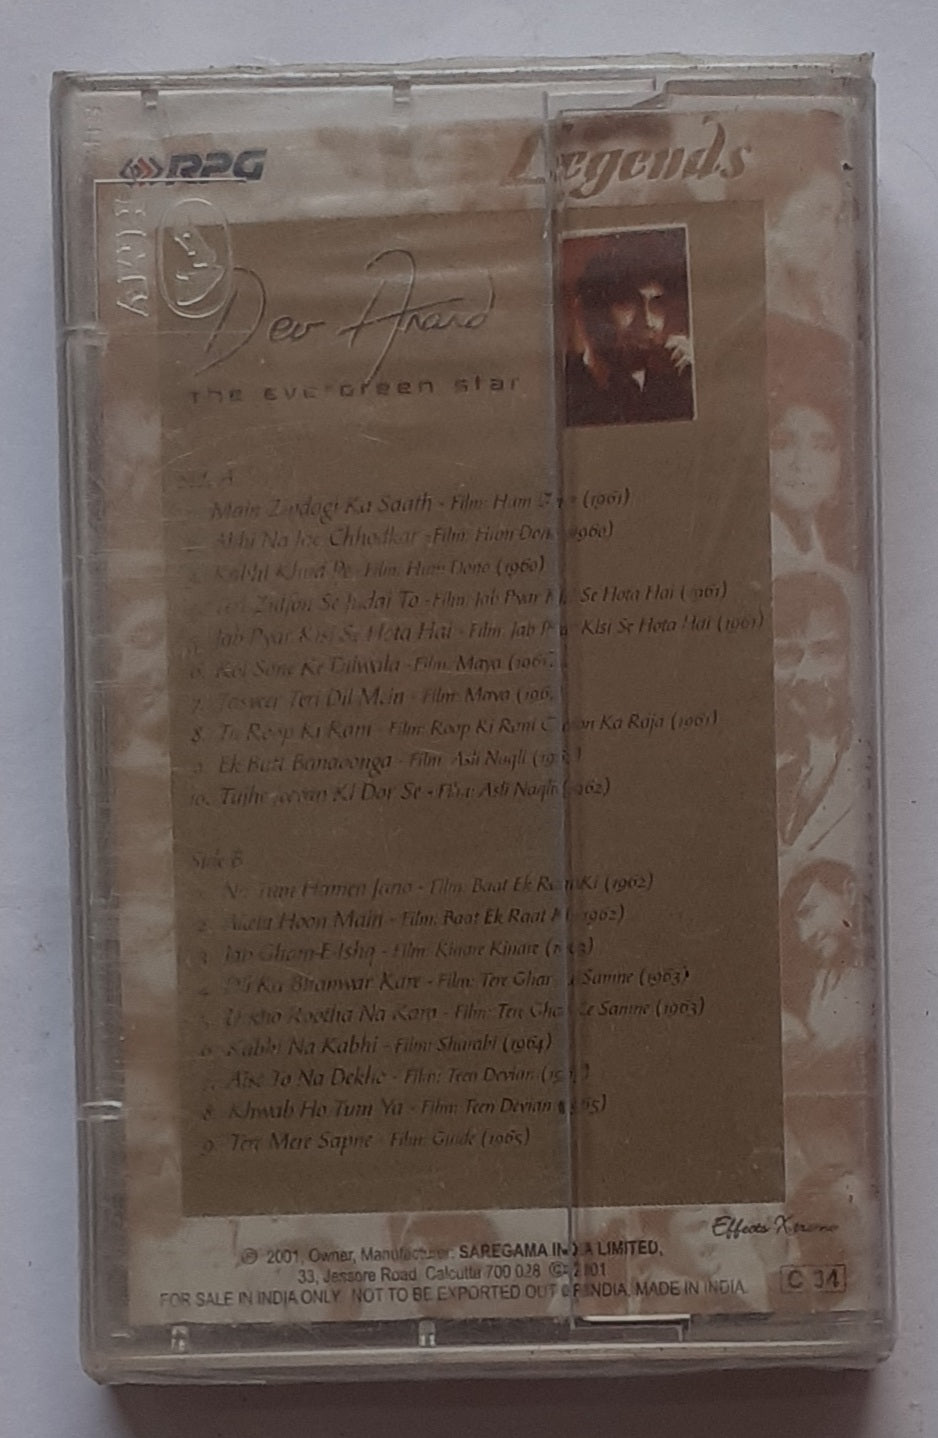 RPG
Legends
Dev Anand
The Evergreen Star
Side A
Main Zindagi Ka Saath - Film: Hum (1961)
Abhi Na Jao Chhodkar - Film: Hum Dono (1960)
Kabhi Khud Pe - Film: Hum Dono (1960)
Se Judai To - Film: Jab Pyar Se Hota Hai (1961)
5. Jab Pyar Kisi Se Hota Hai - Film: Jab Pyar KIsi Se Hota Hai (1961)
6. Koi Sone Ke Dilwala - Film: Maya
7. Tasveer Teri Dil Mein - Film: Maya
8. Tu Roop Ki Rani - Film: Roop Ki Rani Choron Ka Raja (1961)
9. Ek Butt Banaoonga - Film: Asli Naqli
10. Tujhe Jeevan KI Dor Se - Film: Asli Naqli (1962)
Side B
Na Tum Hamen Jano - Film: Baat Ek Raat Ki (1962)
2. Akela Hoon Main - Film: Baat Ek Raat Ki (1962)
3. Jab Gham-E-Ishq - Film: Kinare Kinare
4. Dil Ka Bhanwar Kare - Film: Tere Ghar Ke Samne (1963)
5. Dekho Rootha Na Karo - Film: Tere Ghar Ke Samne (1963)
6. Kabhi Na Kabhi - Film: Sharabi (1964)
7. Aise To Na Dekho - Film: Teen Devian
8. Khwab Ho Tum Ya - Film: Teen Devian (1965)
9. Tere Mere Sapne - Film: Guide (1965)
Effects Xtreme
℗ 2001, Owner, Manufacturer: SAREGAMA INDIA LIMITED,
33, Jessore Road, Calcutta 700 028 © 2001
FOR SALE IN INDIA ONLY. NOT TO BE EXPORTED OUT OF INDIA. MADE IN INDIA.
C 34